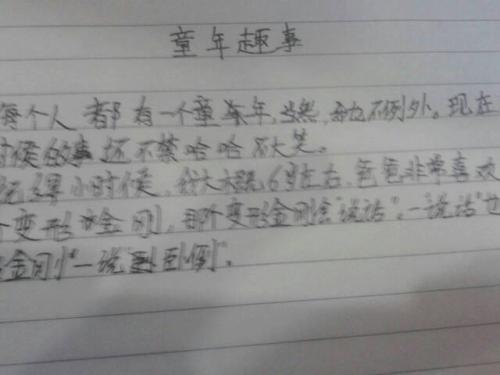 童年趣事
每个人都有一个童年,当然,我也不例外。现在
时候的事还不禁哈哈大笑。
记得小时候,我大概6岁左右,爸爸非常喜欢
个变形金刚,那个变形金刚会"说话",一"说话"也
金刚"一说到卧倒"。